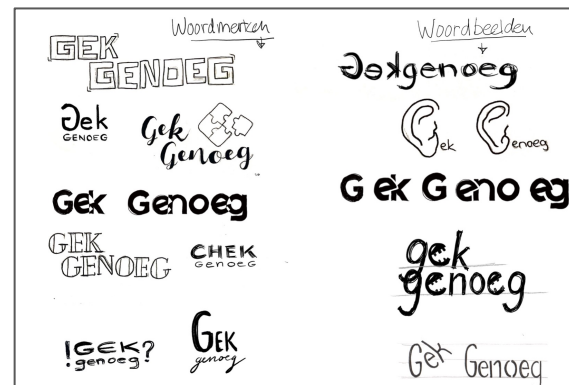 Woordmerken
GEK
GENOEG
Gek
GENOEG
Gek
Genoeg
Gek Genoeg
GEK
GENOEG
CHEK
GENOEG
!GEK?
!genoeg?
GEK
genoeg
Woordbeelden
Gekgenoeg
Gek Genoeg
Gek Genoeg
gek
genoeg
Gek Genoeg